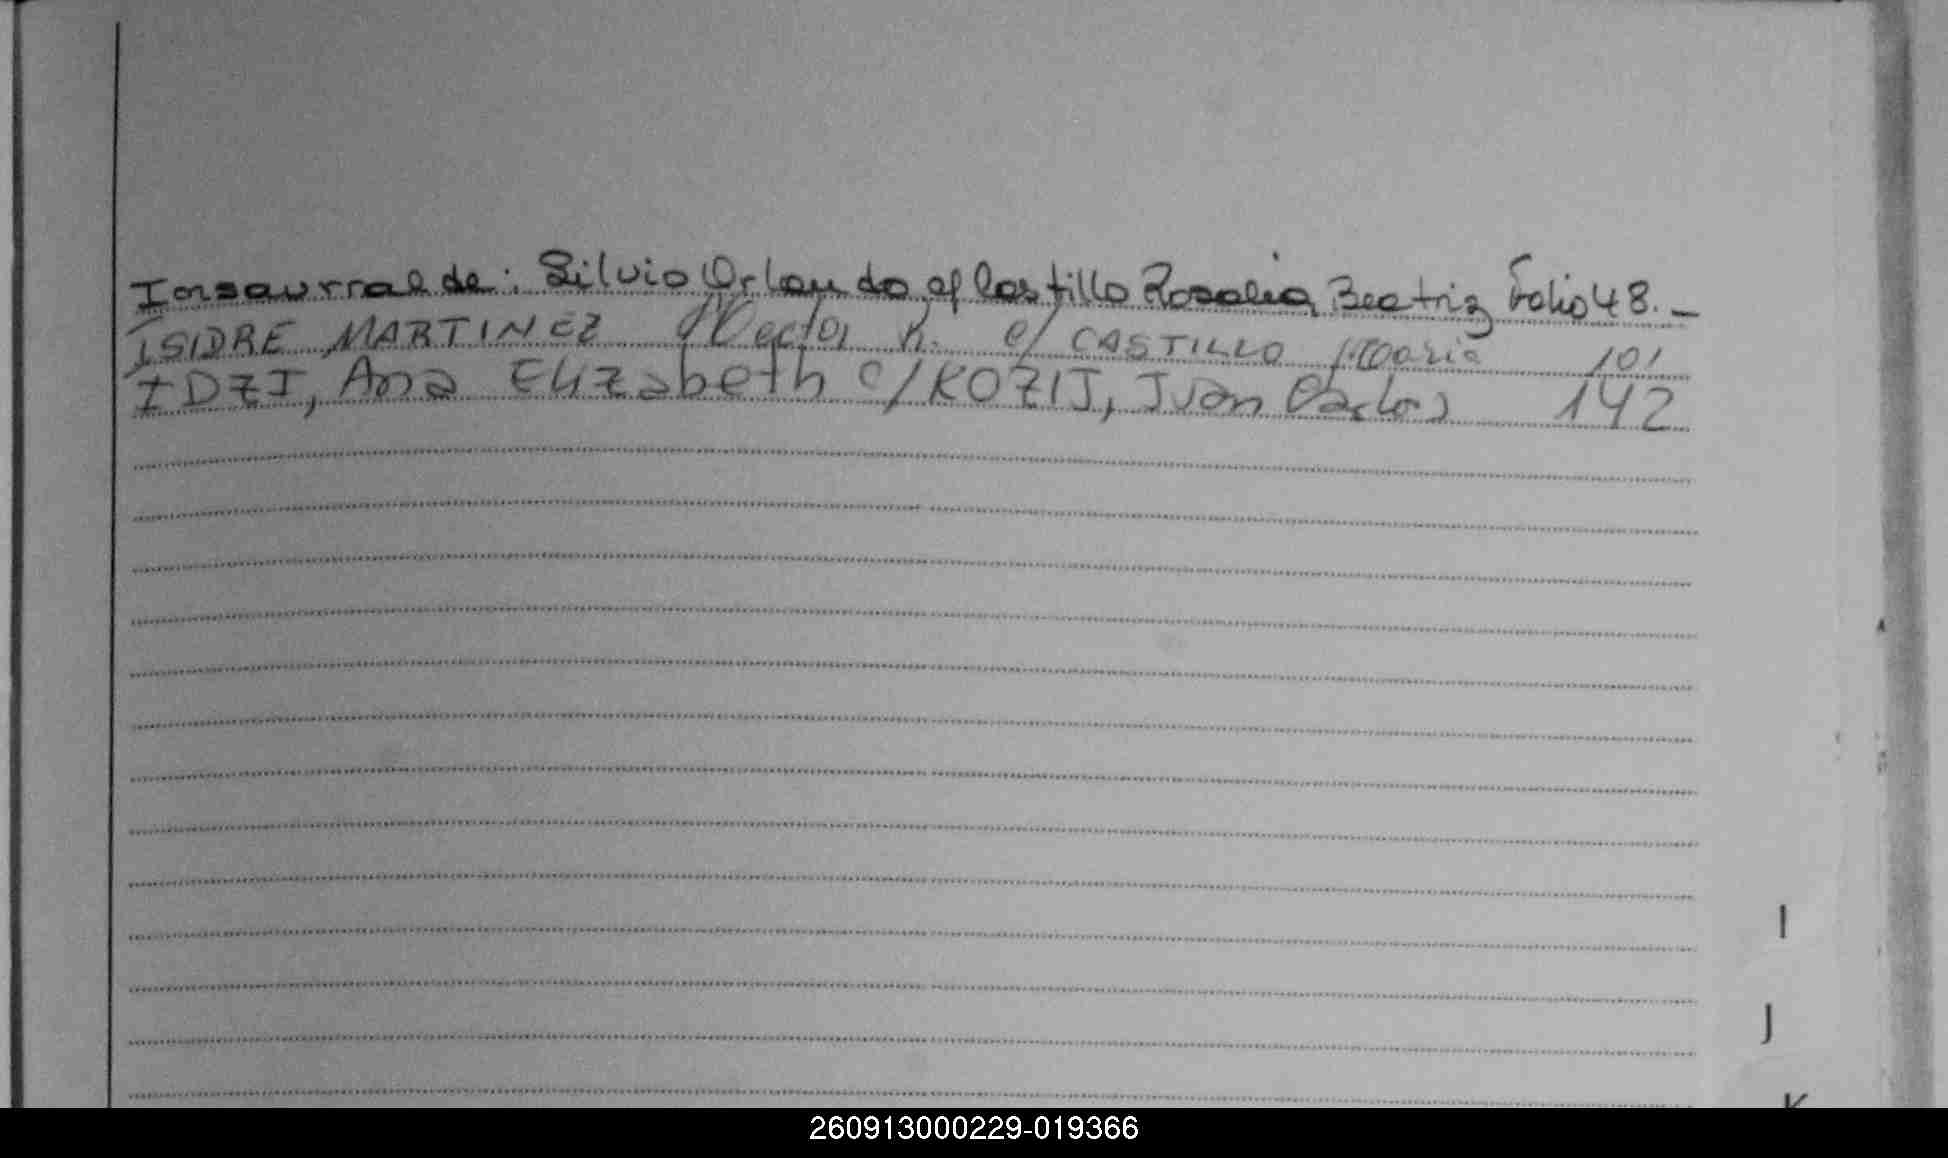 Insaurralde: Silvio Orlando c/ Castillo Rosalia Beatriz Folio 48.—
ISIDRE MARTINEZ Hector R. c/ CASTILLO Maria 101
IDZI, Ana Elizabeth c/ KOZIJ, Juan Carlos 142
I
J
K
260913000229-019366